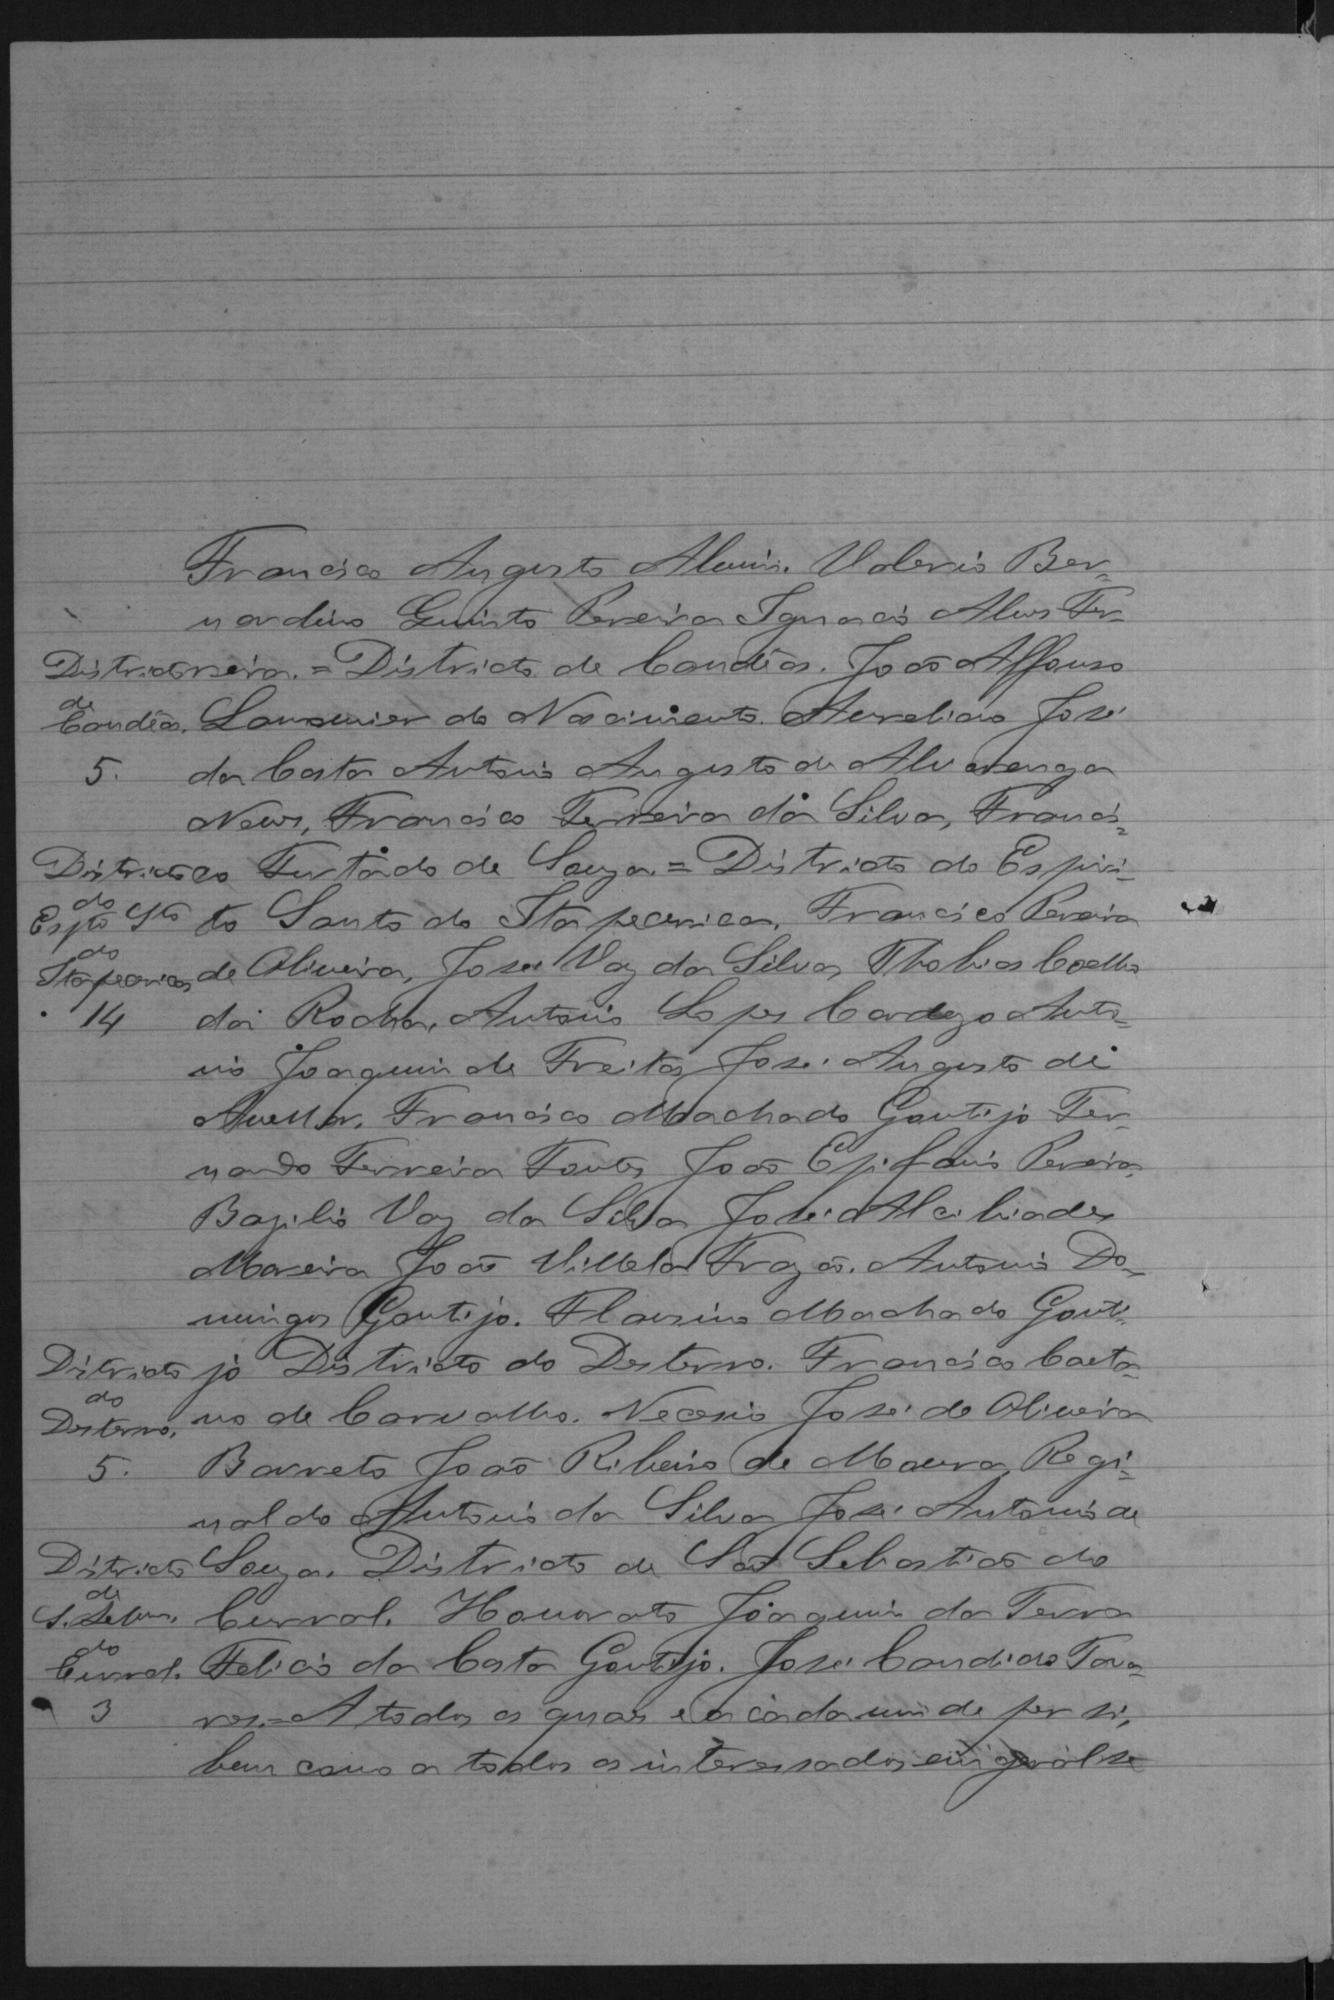 Francisco Augusto Alvim. Valerio Ber-
nardino Quinto Pereira Ignacio Alves Fer-
Districto reira. = Districto de Candêas. João Affonso
de
Candêas. Lamounier do Nascimento. Aureliano José
5. da Costa Antonio Augusto de Alvarenga
Neves, Francisco Ferreira da Silva, Francis-
Districto co Furtado de Souza. = Districto do Espiri-
do
Espto Sto to Santo do Itapecerica, Francisco Pereira
do
Itapecerica de Oliveira, José Vaz da Silva, Thobias Coelho
14 da Rocha, Antonio Lopes Cardozo Anto-
nio Joaquim de Freitas José Augusto de
Avellar. Francisco Machado Gontijo Fer-
nando Ferreira Fontes João Epifanio Pereira,
Bazilio Vaz da Silva José Alcibiades
Moreira João Villela Frazão. Antonio Do-
mingos Gontijo. Machado Gonti-
Districto jo Districto do Desterro. Francisco Caeta-
do
Desterro. no de Carvalho. Necesio José de Oliveira
5. Barreto João Ribeiro de Moura Regi-
naldo Antonio da Silva José Antonio de
Districto Souza. Districto de São Sebastião do
de
S. Sebm. Curral. Honorato Joaquim da Terra
do
Curral. Felicio da Costa Gontijo. José Candido Tava-
3 res. = A todos os quaes e a cada um de per si,
bem como a todos os interessados em geral se